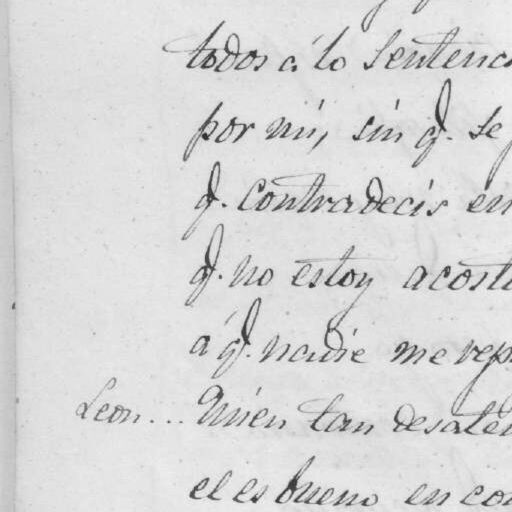 todos á lo Sentenc
por mi, sin q. se
q. Contradecis en
q. no estoy acost
á q. nadie me rep
Leon... Quien tan desaten
el es bueno en con